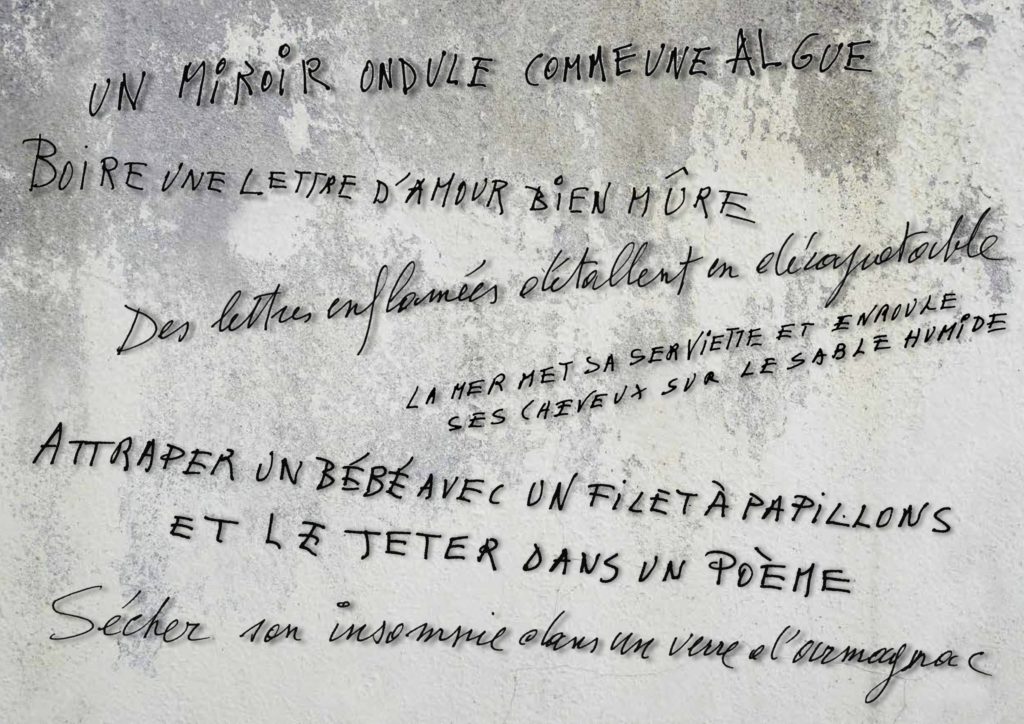 UN MIROIR ONDULE COMME UNE ALGUE
BOIRE UNE LETTRE D'AMOUR BIEN MÛRE
Des lettres enflamées détallent en décapotable
LA MER MET SA SERVIETTE ET ENROULE
SES CHEVEUX SUR LE SABLE HUMIDE
ATTRAPER UN BÉBÉ AVEC UN FILET À PAPILLONS
ET LE JETER DANS UN POÈME
Sécher son insomnie dans un verre d'armagnac